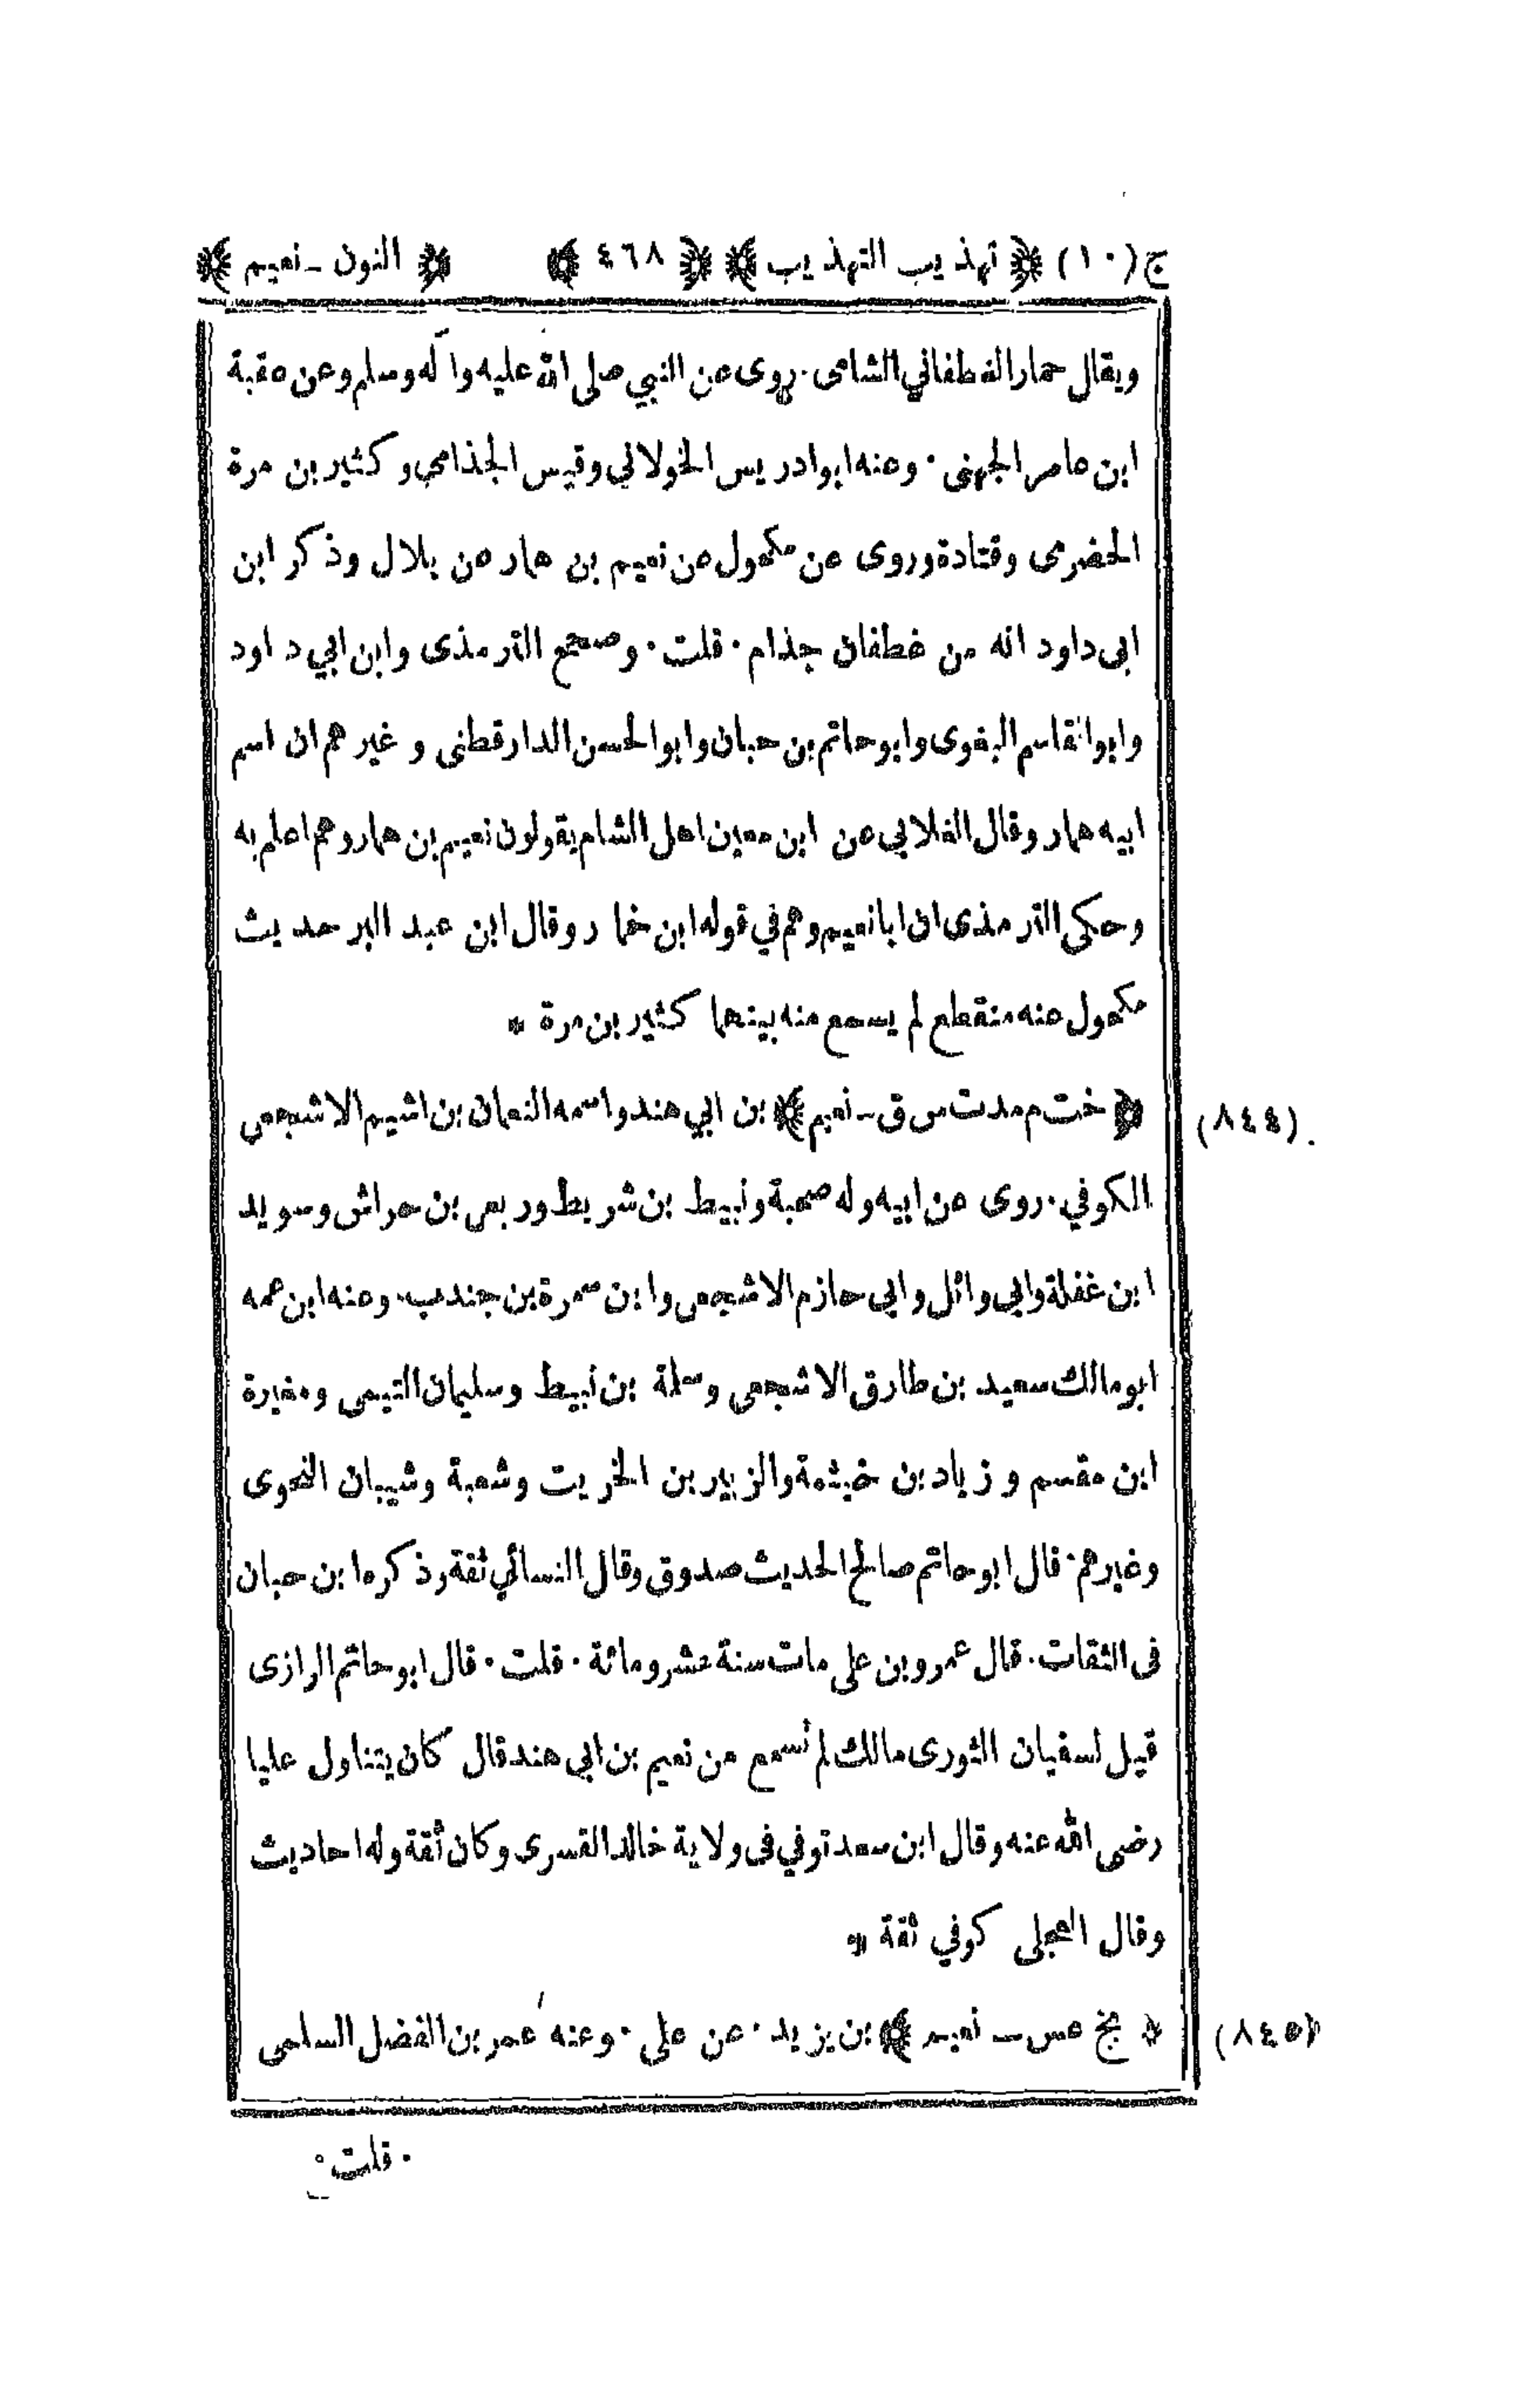 ج(١٠) ﴿ تهذيب التهذيب ﴾ ﴿ ٤٦٨ ﴾ ﴿ النون ـ نعيم ﴾
ويقال حمار الغطفاني الشامى · روى عن النبي صلى الله عليه وآله وسلم وعن عقبة
ابن عامر الجهنى · وعنه ابو ادريس الخولاني وقيس الجذامي وكثير بن مرة
الحضرمى وقتادة وروى عن مكحول عن نعيم بن همار عن بلال وذكر ابن
ابى داود انه من غطفان جذام · قلت · وصحح الترمذى وابن ابي داود
وابو القاسم البغوى وابو حاتم بن حبان وابو الحسن الدارقطنى وغيرهم ان اسم
ابيه همار وقال الغلابي عن ابن معين اهل الشام يقولون نعيم بن همار وهم اعلم به
وحكى الترمذى ان ابا نعيم وهم في قوله ابن خمار وقال ابن عبد البر حديث
مكحول عنه منقطع لم يسمع منه بينهما كثير بن مرة *
﴿ خت م مد ت س ق ـ نعيم ﴾ بن ابي هند واسمه النعمان بن اشيم الاشجعي (٨٤٤)
الكوفي · روى عن ابيه وله صحبة ونبيط بن شريط وربعي بن حراش وسويد
ابن غفلة وابي وائل وابي حازم الاشجعى وابن سمرة بن جندب · وعنه ابن عمه
ابو مالك سعيد بن طارق الاشجعى وسلمة بن نبيط وسليمان التيمى ومغيرة
ابن مقسم وزياد بن خيثمة والزبير بن الخريت وشعبة وشيبان النحوى
وغيرهم · قال ابو حاتم صالح الحديث صدوق وقال النسائي ثقة وذكره ابن حبان
فى الثقات · قال عمرو بن على مات سنة عشر ومائة · قلت · قال ابو حاتم الرازى
قيل لسفيان الثورى مالك لم تسمع من نعيم بن ابي هند قال كان يتناول عليا
رضى الله عنه وقال ابن سعد توفي فى ولاية خالد القسرى وكان ثقة وله احاديث
وقال العجلى كوفي ثقة *
﴿ بخ عس ـ نعيم ﴾ بن يزيد · عن على · وعنه عمر بن الفضل السلمى (٨٤٥)
· قلت ·